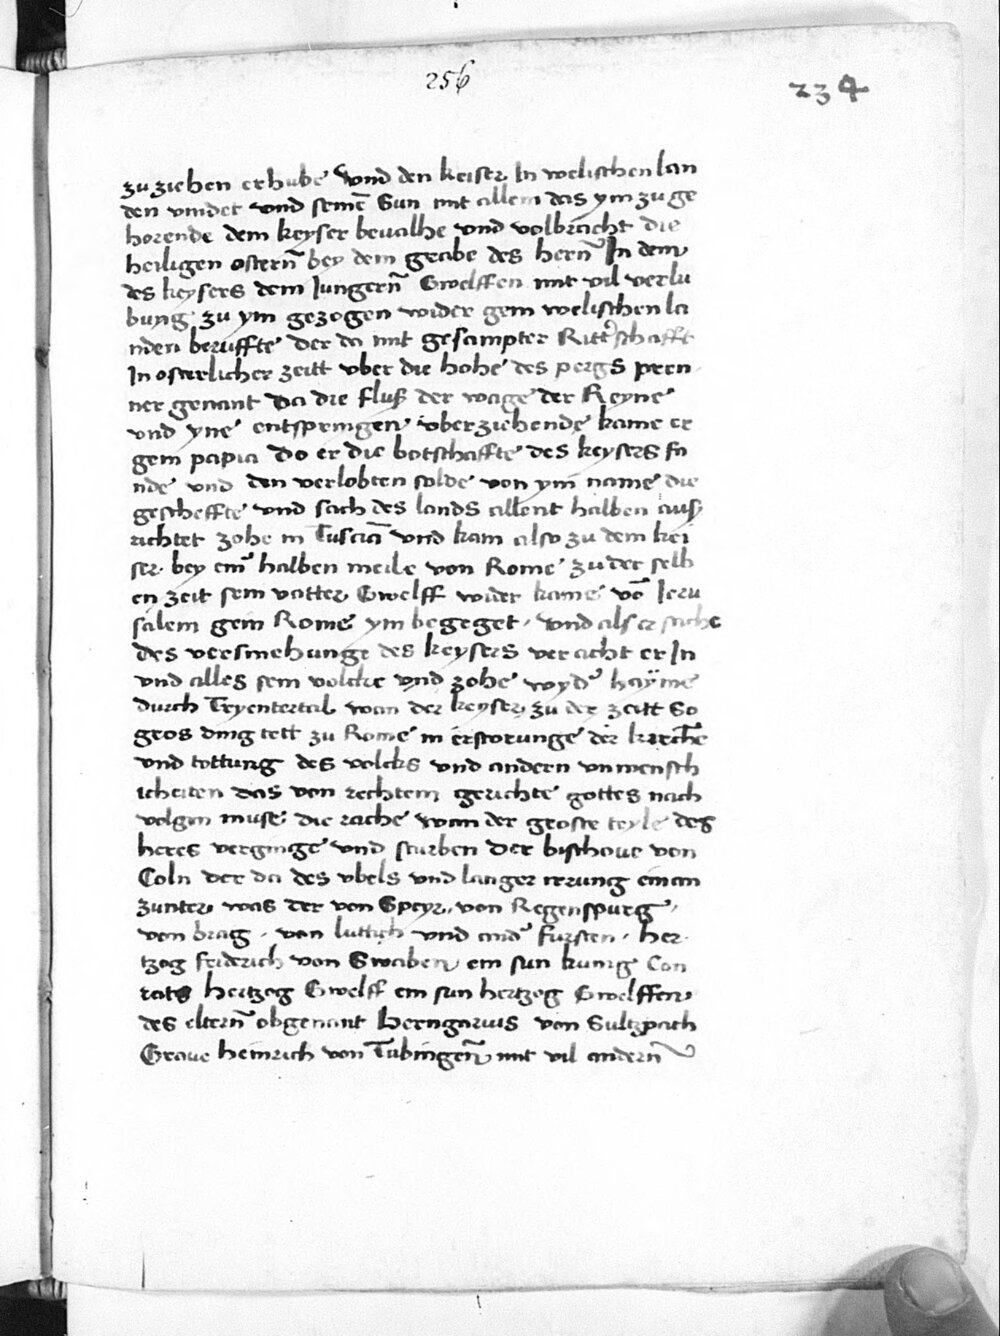 256
234
zu ziehen erhube Vnd den keiser In welischen lan
den vnnder vnd seinē Sun mit allem das ym zu ge
horende dem keyser beualhe vnd volbracht die
heiligen ostern̄ bey dem grabe des hern̄ In dem
des keysers dem Jungern̄ Gwelffen mit vil verlu
bung zu ym gezogen wider gem welischen la
nden beruffte der da mit gesampter Ritt'schafft
In osterlicher zeitt vber die hohe des pergs pren
ner genant Da die fluß der wage der Reyne
vnd yne entspringen vberziehende kame er
gem papia Do er die botschaffte des keysers fa
nde vnd den verlobten solde von ym name die
gescheffte vnd sach des lands allent halben aus
richtet zohe in Tusciā vnd kam also zu dem kei
ser bey em' halben meile von Rome zu der selb
en zeit sem vatter Gwelff wider kame vō Jeru
salem gem Rome ym begeget, Vnd als er sache
des versmehunge des keysers veracht er In
vnd alles sem volcke vnd zohe wyd' hayme
durch Tryentertal wan der keyser zu der zeitt So
gros ding tett zu Rome in erstorunge der kirchē
vnd tottung des volcks vnd andern vnmensch
icheiten das von rechtem gerichte gottes nach
volgin muse die rache wan der groste teyle des
heres verginge vnd sturben der bischoue von
Coln der da des vbels vnd langer irrung ein an
zunter was der von Speyr, von Regenspurg,
von brag, von luttich vnd and' fursten, her
tzog friderich von Swaben em sun kunig Con
rats hertzog Gwelff em sun hertzog Gwelffen
des eltern̄ obgenant Berngarius von Sultzpach
Graue heinrich von Tubingen̄ mit vil andern̄